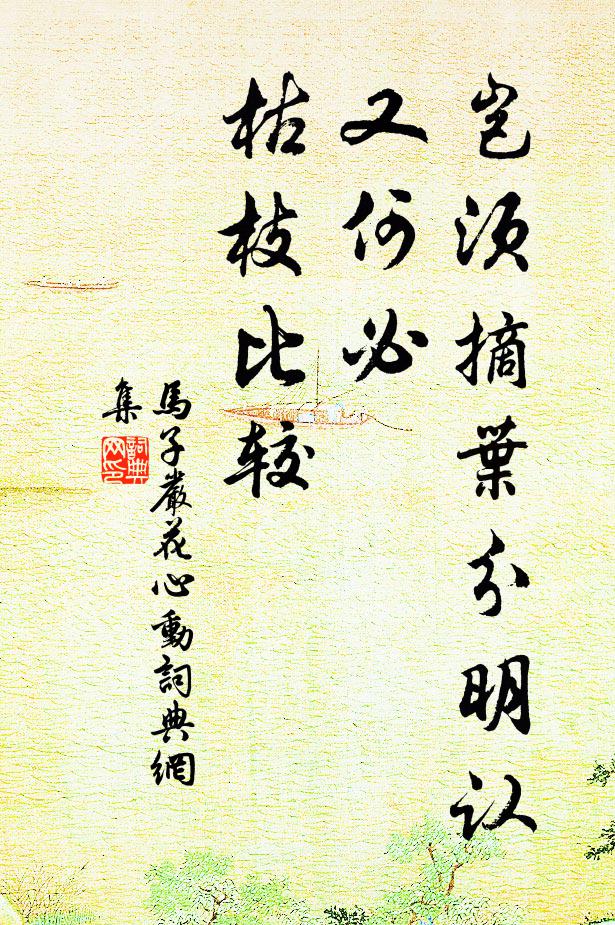 岂须摘葉分明认
又何必
枯枝比较
馬子嚴花心動詞典網
集
詞典
网印